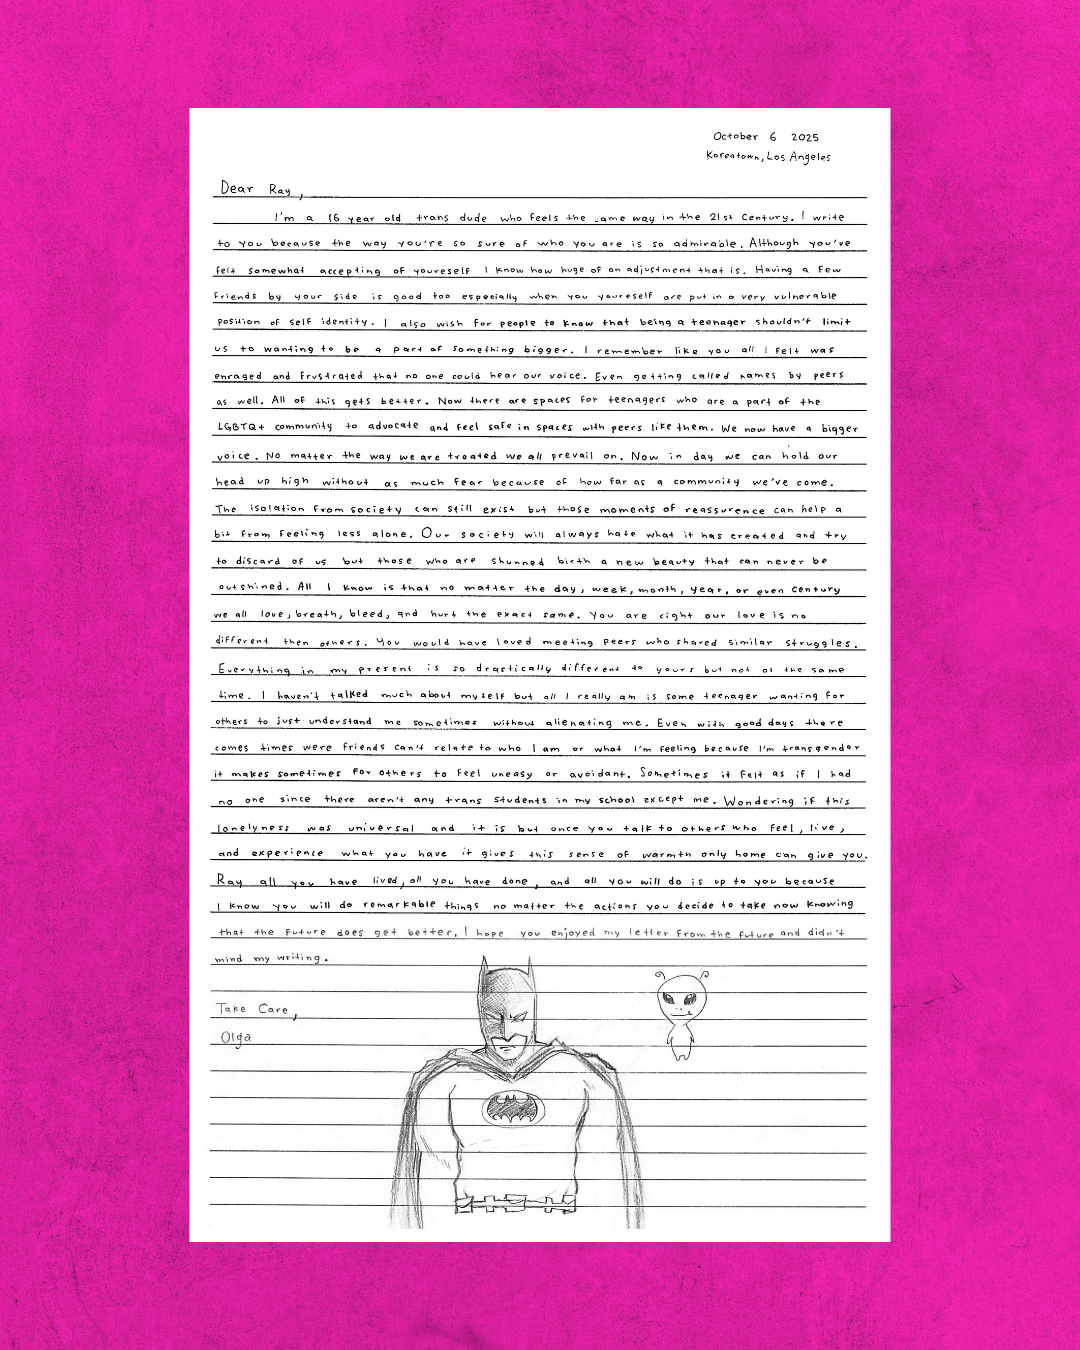 October 6 2025
Koreatown, Los Angeles
Dear Ray,
I'm a 16 year old trans dude who feels the same way in the 21st Century. I write
to you because the way you're so sure of who you are is so admirable. Although you've
felt somewhat accepting of youreself I know how huge of an adjustment that is. Having a few
friends by your side is good too especially when you youreself are put in a very vulnerable
position of self identity. I also wish for people to know that being a teenager shouldn't limit
us to wanting to be a part of something bigger. I remember like you all I felt was
enraged and frustrated that no one could hear our voice. Even getting called names by peers
as well. All of this gets better. Now there are spaces for teenagers who are a part of the
LGBTQ+ community to advocate and feel safe in spaces with peers like them. We now have a bigger
voice. No matter the way we are treated we all prevail on. Now in day we can hold our
head up high without as much fear because of how far as a community we've come.
The isolation from society can still exist but those moments of reassurence can help a
bit from feeling less alone. Our society will always hate what it has created and try
to discard of us but those who are shunned birth a new beauty that can never be
outshined. All I know is that no matter the day, week, month, year, or even century
we all love, breath, bleed, and hurt the exact same. You are right our love is no
different then others. You would have loved meeting peers who shared similar struggles.
Everything in my present is so drastically different to yours but not at the same
time. I haven't talked much about myself but all I really am is some teenager wanting for
others to just understand me sometimes without alienating me. Even with good days there
comes times were friends can't relate to who I am or what I'm feeling because I'm transgender
it makes sometimes for others to feel uneasy or avoidant. Sometimes it felt as if I had
no one since there aren't any trans students in my school except me. Wondering if this
lonelyness was universal and it is but once you talk to others who feel, live,
and experience what you have it gives this sense of warmth only home can give you.
Ray all you have lived, all you have done, and all you will do is up to you because
I know you will do remarkable things no matter the actions you decide to take now knowing
that the future does get better. I hope you enjoyed my letter from the future and didn't
mind my writing.
Take Care,
Olga